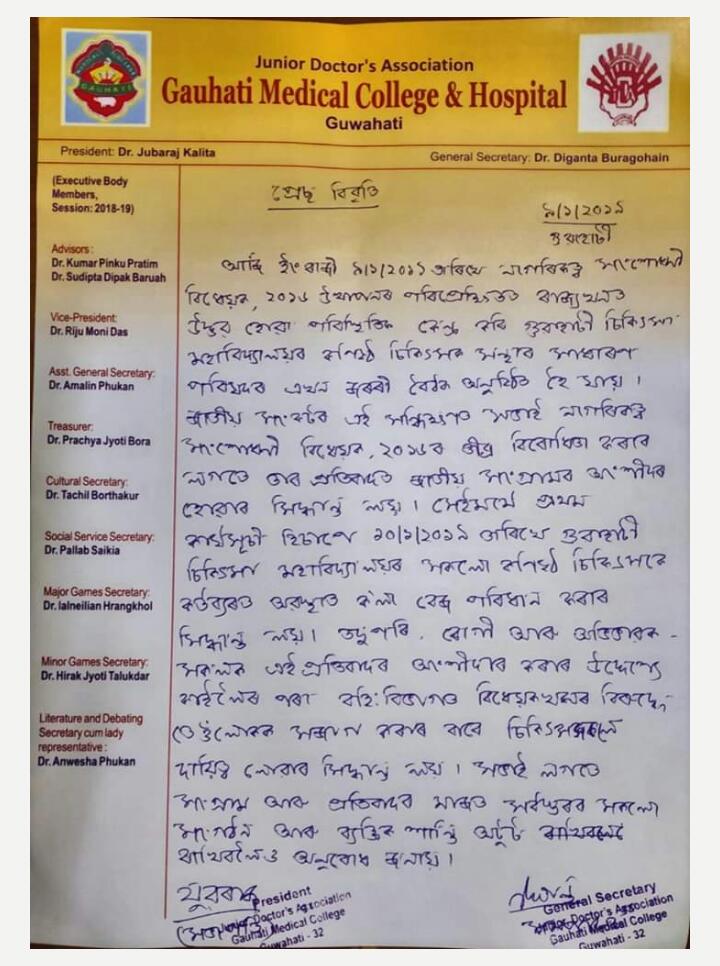 Junior Doctor's Association
Gauhati Medical College & Hospital
Guwahati
President: Dr. Jubaraj Kalita
General Secretary: Dr. Diganta Buragohain
(Executive Body
Members,
Session: 2018-19)
Advisors :
Dr. Kumar Pinku Pratim
Dr. Sudipta Dipak Baruah
Vice-President:
Dr. Riju Moni Das
Asst. General Secretary:
Dr. Amalin Phukan
Treasurer:
Dr. Prachya Jyoti Bora
Cultural Secretary:
Dr. Tachil Borthakur
Social Service Secretary:
Dr. Pallab Saikia
Major Games Secretary:
Dr. lalneilian Hrangkhol
Minor Games Secretary:
Dr. Hirak Jyoti Talukdar
Literature and Debating
Secretary cum lady
representative :
Dr. Anwesha Phukan
প্ৰেছ বিবৃতি
৯/১/২০১৯
গুৱাহাটী
আজি ইং ৯/১/২০১৯ তাৰিখে নাগৰিকত্ব সংশোধনী
বিধেয়ক, ২০১৬ উত্থাপনৰ পৰিপ্ৰেক্ষিতত ৰাজ্যখনত
উদ্ভৱ হোৱা পৰিস্থিতিক কেন্দ্ৰ কৰি গুৱাহাটী চিকিৎসা
মহাবিদ্যালয়ৰ কনিষ্ঠ চিকিৎসক সন্থাৰ সাধাৰণ
পৰিষদৰ এখন জৰুৰী বৈঠক অনুষ্ঠিত হৈ যায় ।
জাতীয় সংকটৰ এই সন্ধিক্ষণত সভাই নাগৰিকত্ব
সংশোধনী বিধেয়ক, ২০১৬ৰ তীব্ৰ বিৰোধিতা কৰাৰ
লগতে তাৰ প্ৰতিবাদত জাতীয় সংগ্ৰামৰ অংশীদাৰ
হোৱাৰ সিদ্ধান্ত লয় । সেইমৰ্মে প্ৰথম
কাৰ্যসূচী হিচাপে ১০/১/২০১৯ তাৰিখে গুৱাহাটী
চিকিৎসা মহাবিদ্যালয়ৰ সকলো কনিষ্ঠ চিকিৎসকে
কৰ্তব্যৰত অৱস্থাত ক'লা বেজ পৰিধান কৰাৰ
সিদ্ধান্ত লয় । তদুপৰি, ৰোগী আৰু অভিভাৱক-
সকলক এই প্ৰতিবাদৰ অংশীদাৰ কৰাৰ উদ্দেশ্যে
কাইলৈৰ পৰা বহিঃবিভাগত বিধেয়কখনৰ বিৰুদ্ধে
তেওঁলোকক সজাগ কৰাৰ বাবে চিকিৎসকসকলে
দায়িত্ব লোৱাৰ সিদ্ধান্ত লয় । সভাই লগতে
সংগ্ৰাম আৰু প্ৰতিবাদৰ মাজত সৰ্বস্তৰৰ সকলো
সংগঠন আৰু ব্যক্তিক শান্তি অটুট
ৰাখিবলৈও অনুৰোধ জনায় ।
যুবৰাজ
President
Junior Doctor's Association
Gauhati Medical College
Guwahati - 32
General Secretary
Junior Doctor's Association
Gauhati Medical College
Guwahati - 32